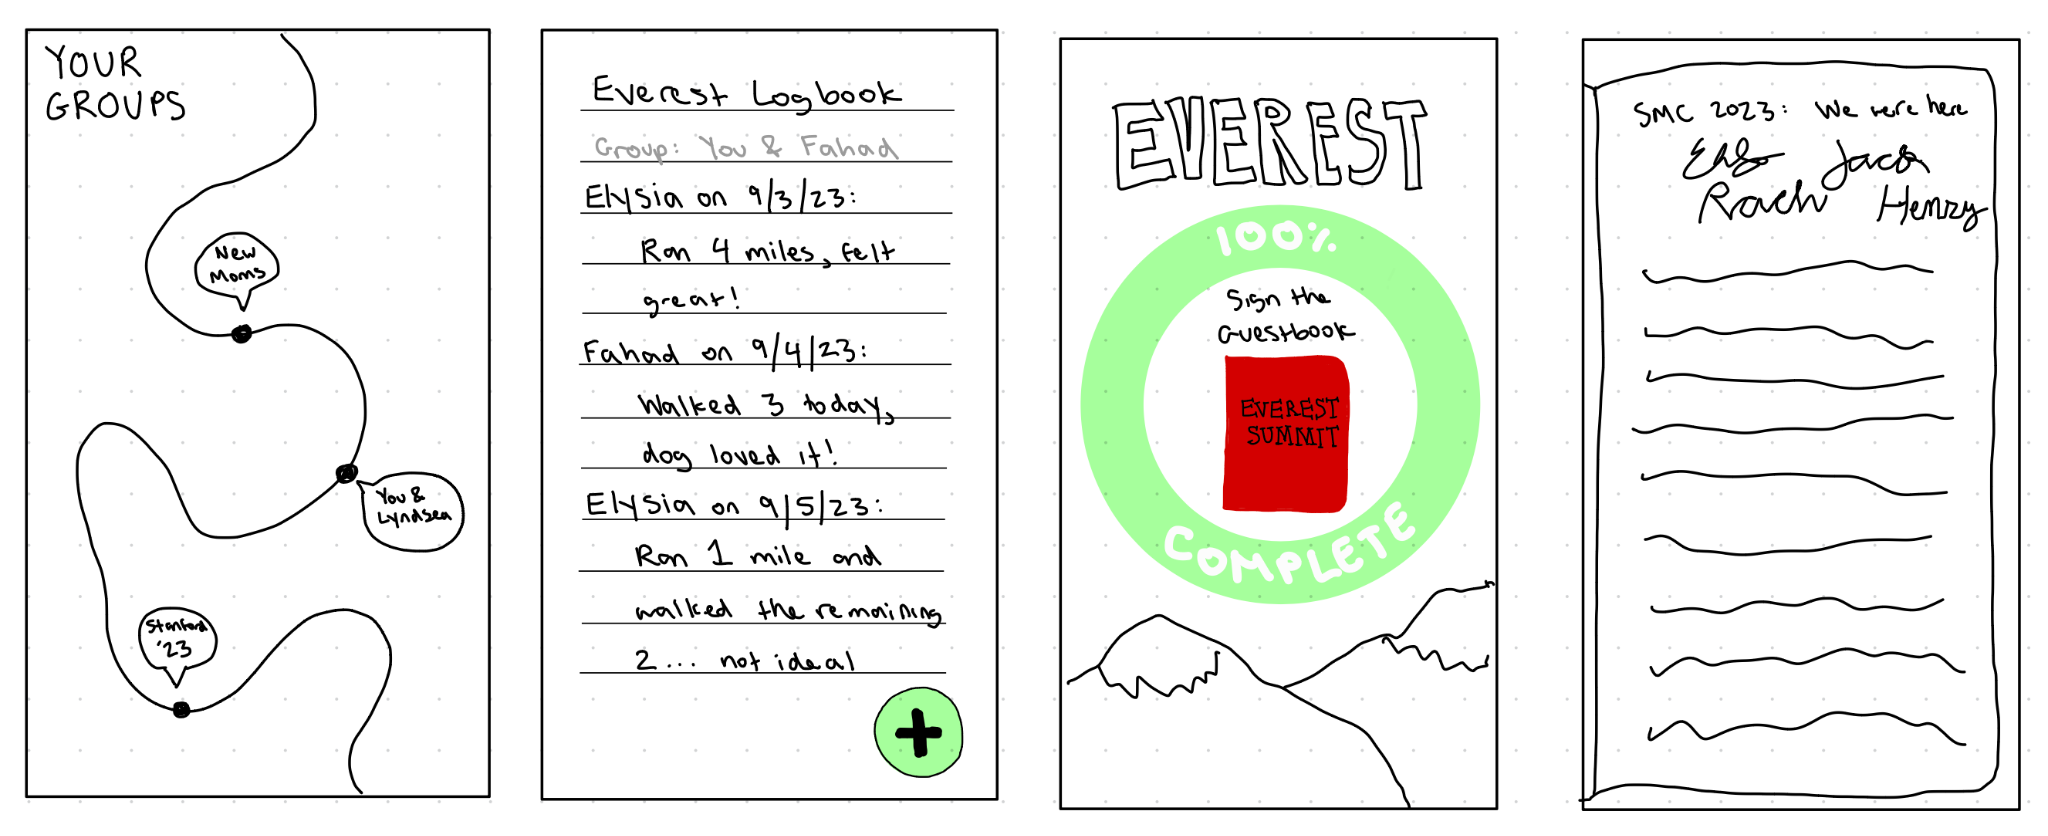 YOUR
GROUPS
New
Moms
You &
Lyndsea
Stanford
'23
Everest Logbook
Group: You & Fahad
Elysia on 9/3/23:
Ran 4 miles, felt
great!
Fahad on 9/4/23:
Walked 3 today,
dog loved it!
Elysia on 9/5/23:
Ran 1 mile and
walked the remaining
2... not ideal
+
EVEREST
100%
Sign the
Guestbook
EVEREST
SUMMIT
COMPLETE
SMC 2023: We were here
Jack
Rach Henry